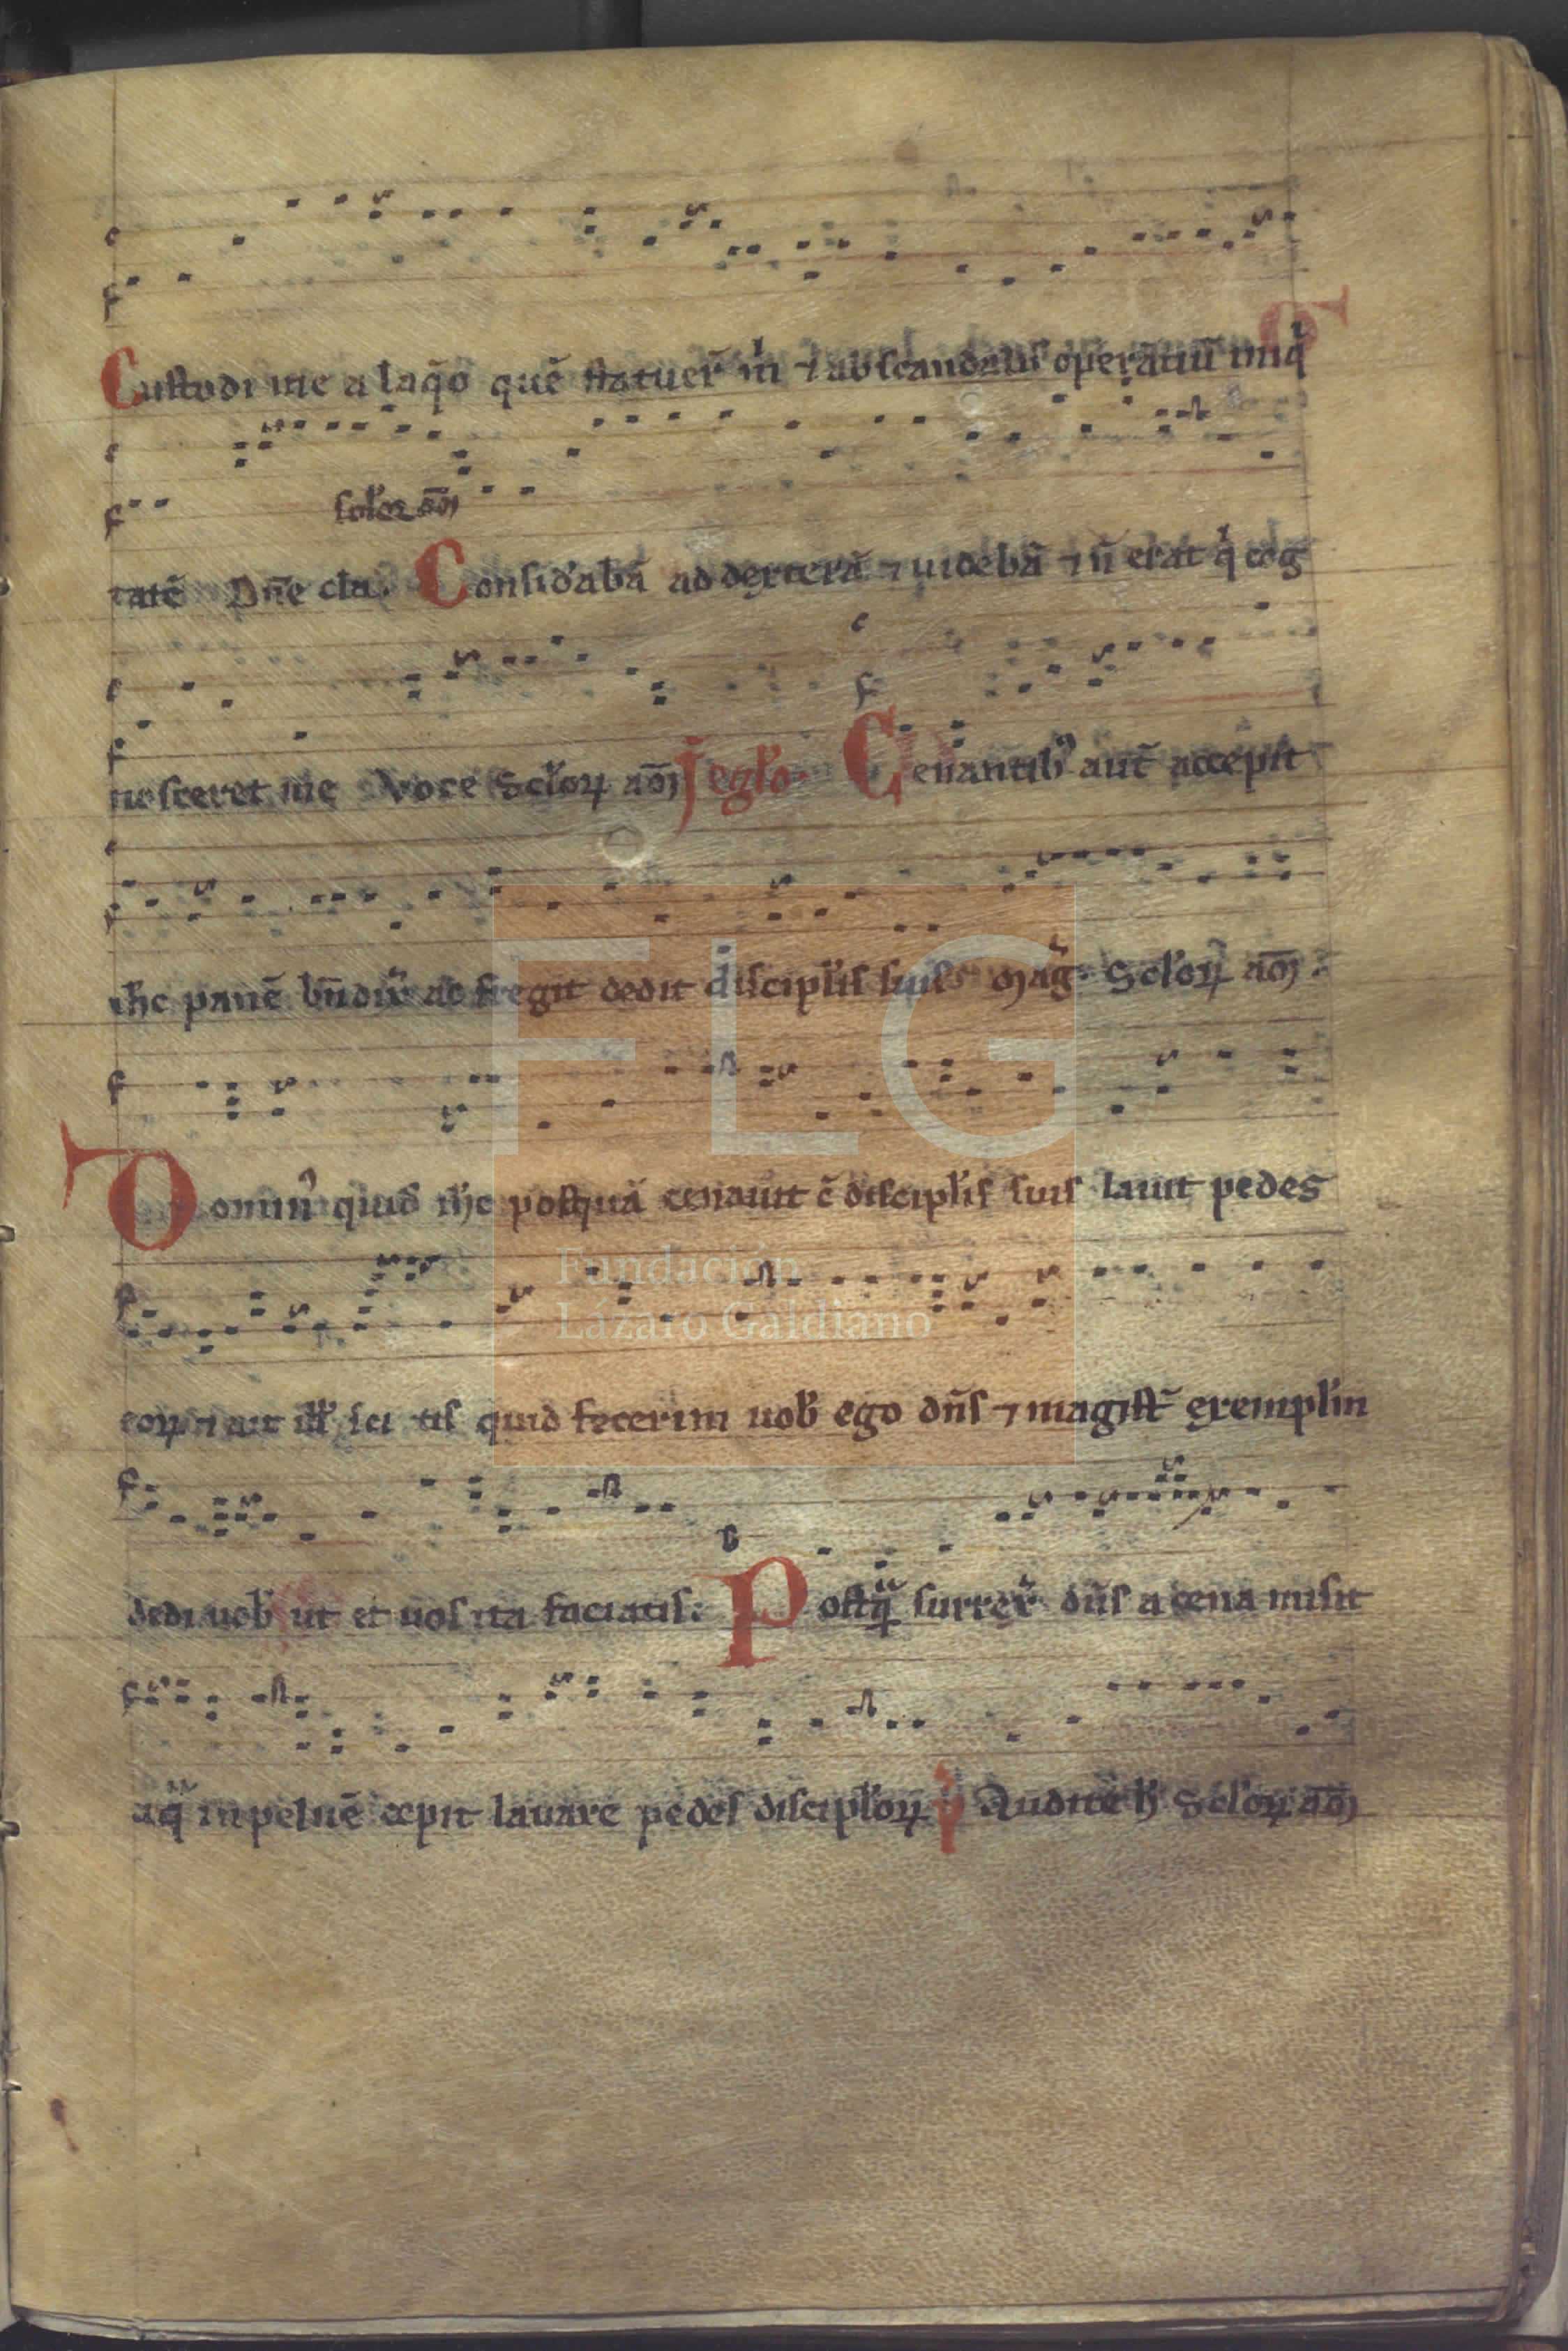 Custodi me a laq̃o quẽ statuer̃ m̓ ⁊ ab scandalis operãtiũ iniq̓
sclo᷑ꝝ am̄
tatẽ Dñe cla. Consid̓abã ad dexterã ⁊ uidebã ⁊ ñ erat q̓ cog
nosceret me Voce Sclo᷑ꝝ am̄ J eglo᷑. Cenantib᷒ aut̃ accepit
ih̄c panẽ bñdix̓ ac fregit dedit discipl̓is suis Mag̃. Sclo᷑ꝝ am̄.
Domin᷒ quid ih̄c postquã cenauit c̃ discipl̓is suis lauit pedes
eoꝝ ⁊ ait ill̓ sci tis quid fecerim uob̓ ego dñs ⁊ magist̃ exempl̓m
dedi uob̓ ut et uos ita faciatis: Postq̃ surrex̓ dñs a cena misit
aq̃ in peluẽ cepit lauare pedes discipl̓oꝝ p̓ Audite h̓ Sclo᷑ꝝ am̄
FLG
Fundación
Lázaro Galdiano